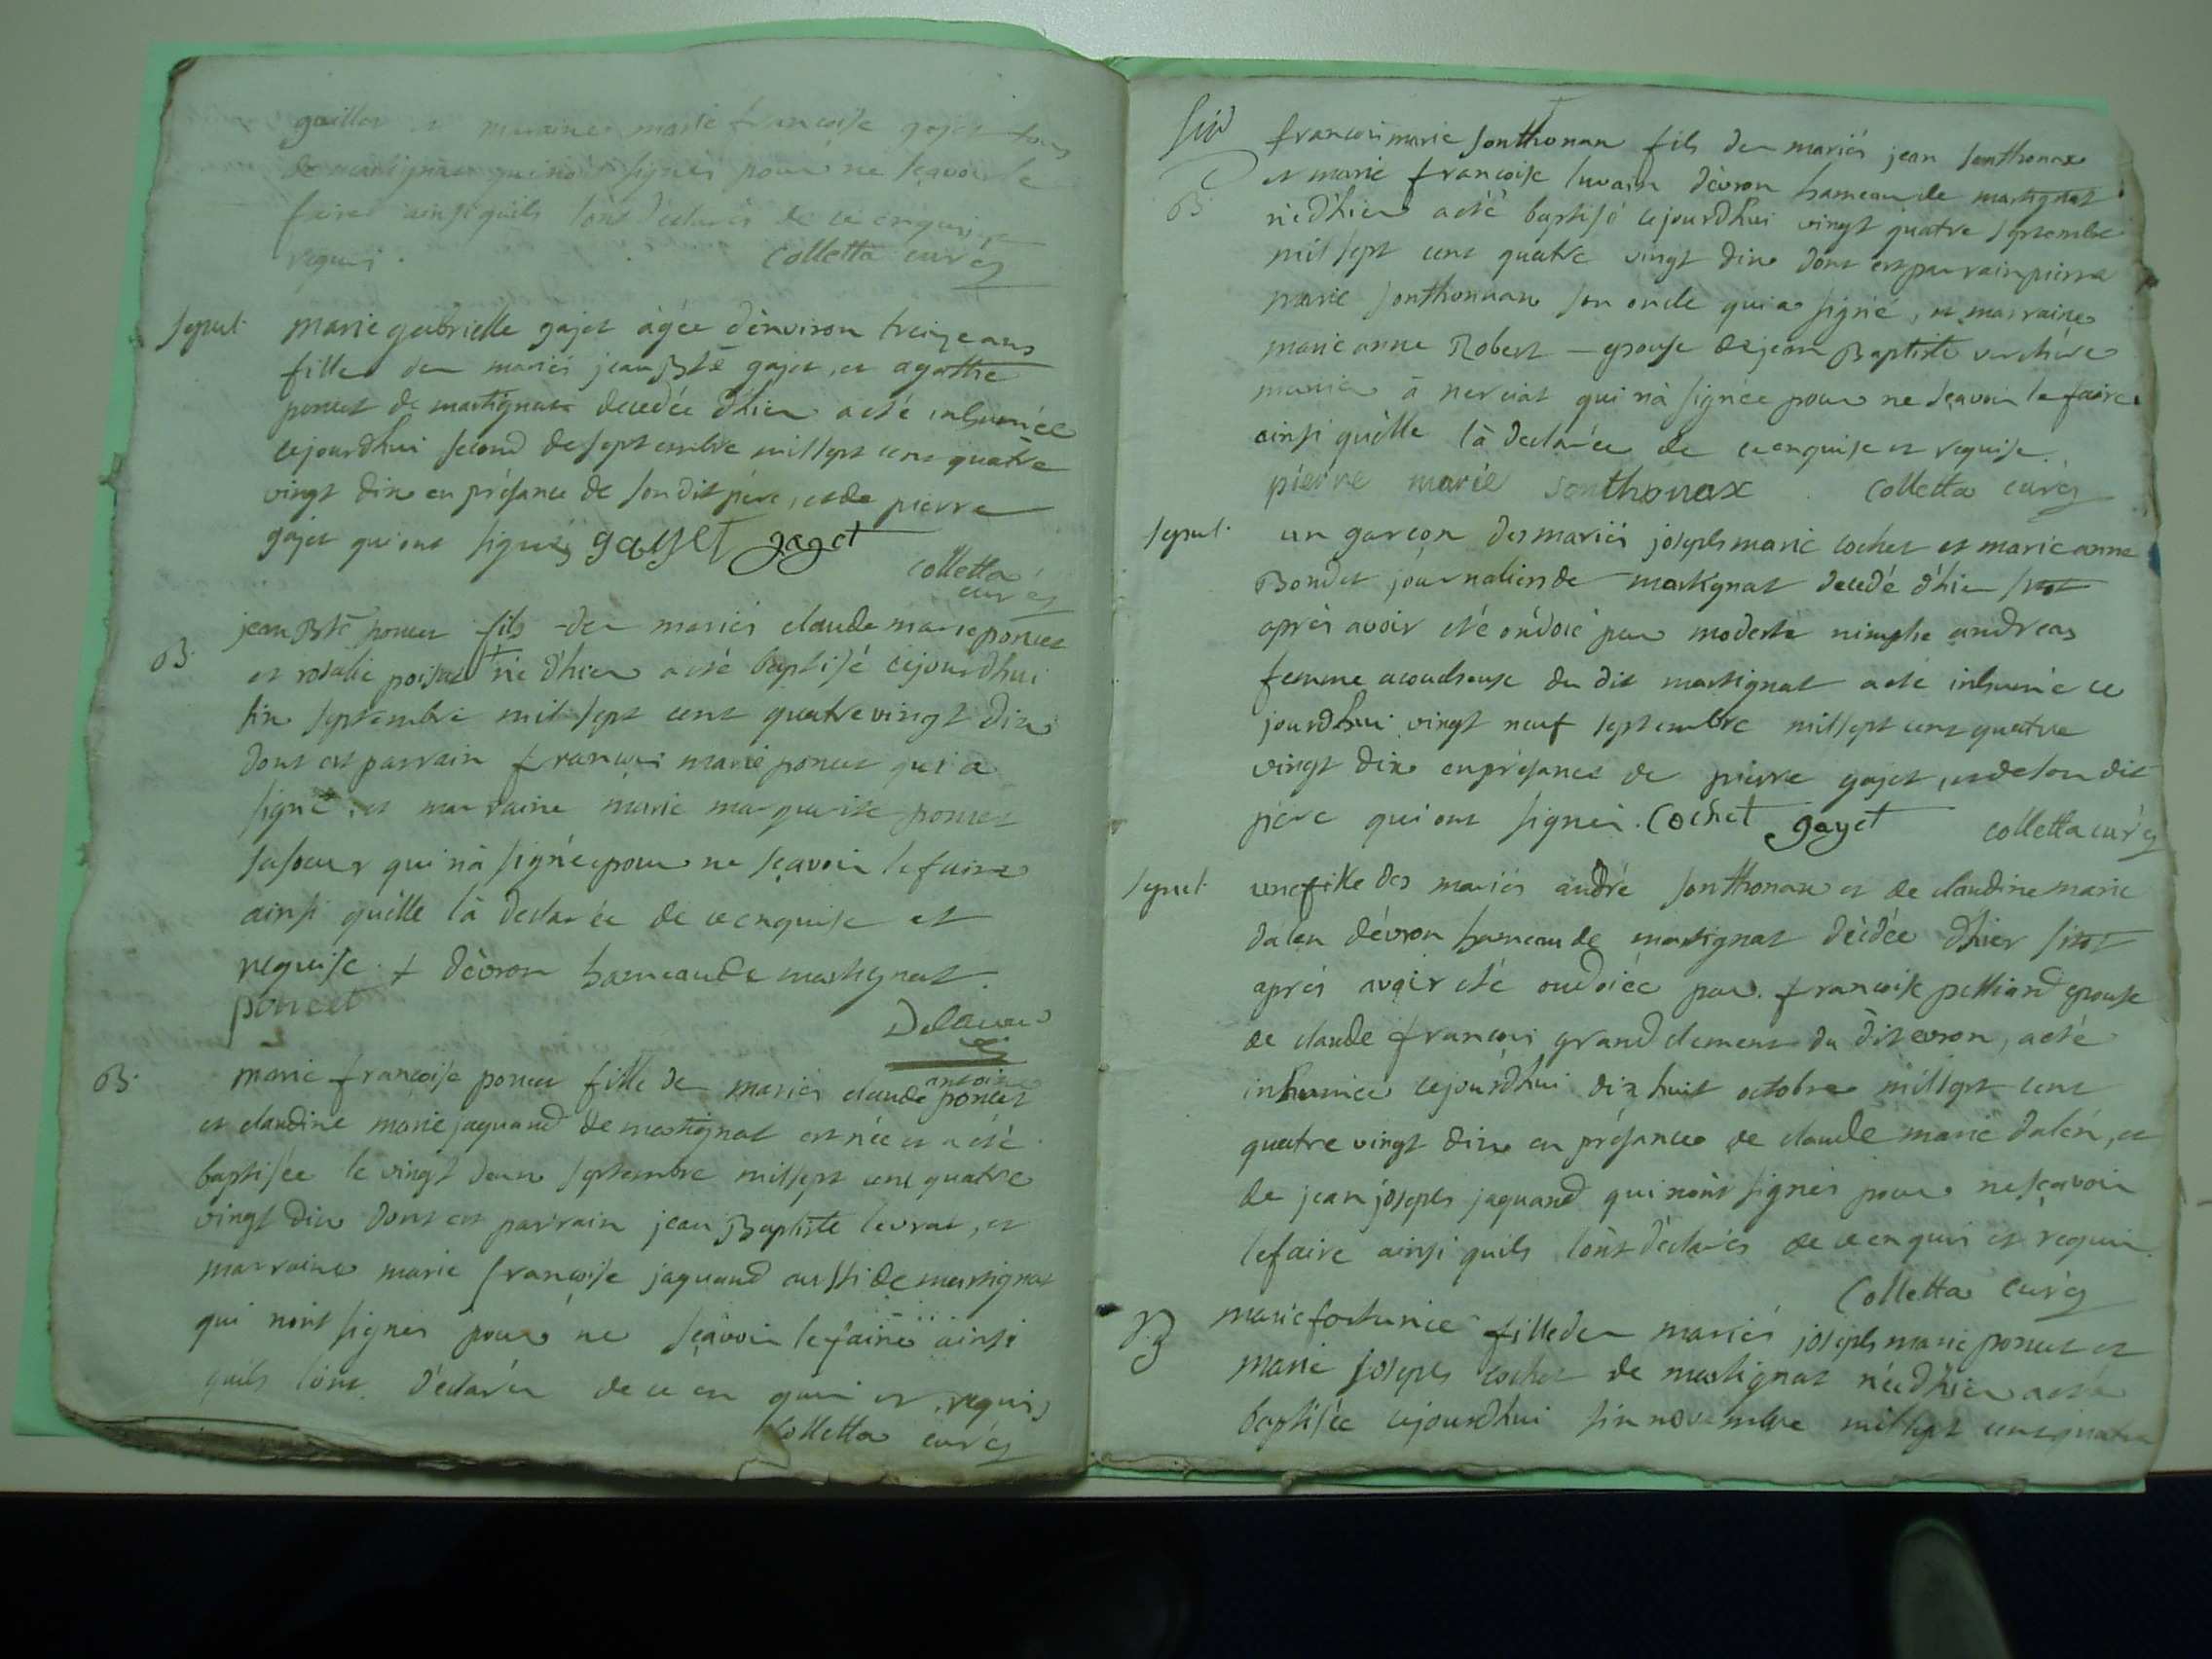 et maraine marie francoise gajet tous
de martignat qui nont signés pour ne sçavoir le
faire ainsi quils lont déclarés de ce enquis et
requis. Colletta curé
sepul. marie gabrielle gajet agée denviron treize ans
fille des mariés jean Bte gajet, et agathe
poncet de martignat decedée dhier a eté inhumée
cejourdhui second de septembre mil sept cens quatre
vingt dix en présance de son dit père, et de pierre
gajet qui ont signés gayet gaget
colletta
curé
jean Bte poncet fils des mariés claude marie poncet
B. et rosalie poisat + né dhier a eté baptisé cejourdhui
six septembre mil sept cens quatre vingt dix
dont est parrain francois marie poncet qui a
signé, et marraine marie marguerite poncet
sa soeur qui nà signée pour ne sçavoir le faire
ainsi quelle là declarée de ce enquise et
requise. + dèvron hameau de martignat.
poncet
B. marie francoise poncet fille des mariés claude antoine poncet
et claudine marie jaquand de martignat est née et a eté
baptisée le vingt deux septembre mil sept cens quatre
vingt dix dont est parrain jean Baptiste levrat, et
marraine marie francoise jaquand aussi de martignat
qui nont signés pour ne sçavoir le faire ainsi
quils lont déclarés de ce en quis et requis
Colletta curé
francois marie sonthonax fils des mariés jean sonthonax
et marie francoise dévron hameau de martignat
B. né dhier a eté baptisé cejourdhui vingt quatre septembre
mil sept cens quatre vingt dix dont est parrain pierre
marie sonthonnax son oncle qui a signé, et marraine
marie anne Robert - epouse de jean Baptiste verchère
à nerciat qui nà signée pour ne sçavoir le faire
ainsi quelle là declarée de ce enquise et requise.
pierre marie sonthonax Colletta curé
sepul. un garçon des mariés joseph marie cochet et marie anne
Bondet journaliers de martignat decedé dhier sitot
après avoir eté ondoié par modeste nimphe andreas
femme acoucheuse du dit martignat a eté inhumé ce
jourdhui vingt neuf septembre mil sept cens quatre
vingt dix en présance de pierre gajet, et de son dit
père qui ont signés. Cochet gayet colletta curé
sepul. une fille des mariés andré sonthonax et de claudine marie
dalen dévron hameau de martignat décédée dhier sitot
après avoir eté ondoiée par francoise pelliand epouse
de claude francois grand clement du dit evron, a eté
inhumée cejourdhui dix huit octobre mil sept cens
quatre vingt dix en présance de claude marie dalen, et
de jean joseph jaquand qui nont signés pour ne sçavoir
le faire ainsi quils lont déclarés de ce enquis et requis.
Colletta curé
B marie fortunée fille des mariés joseph marie poncet et
marie joseph cochet de martignat née dhier a eté
baptisée cejourdhui six novembre mil sept cens quatre